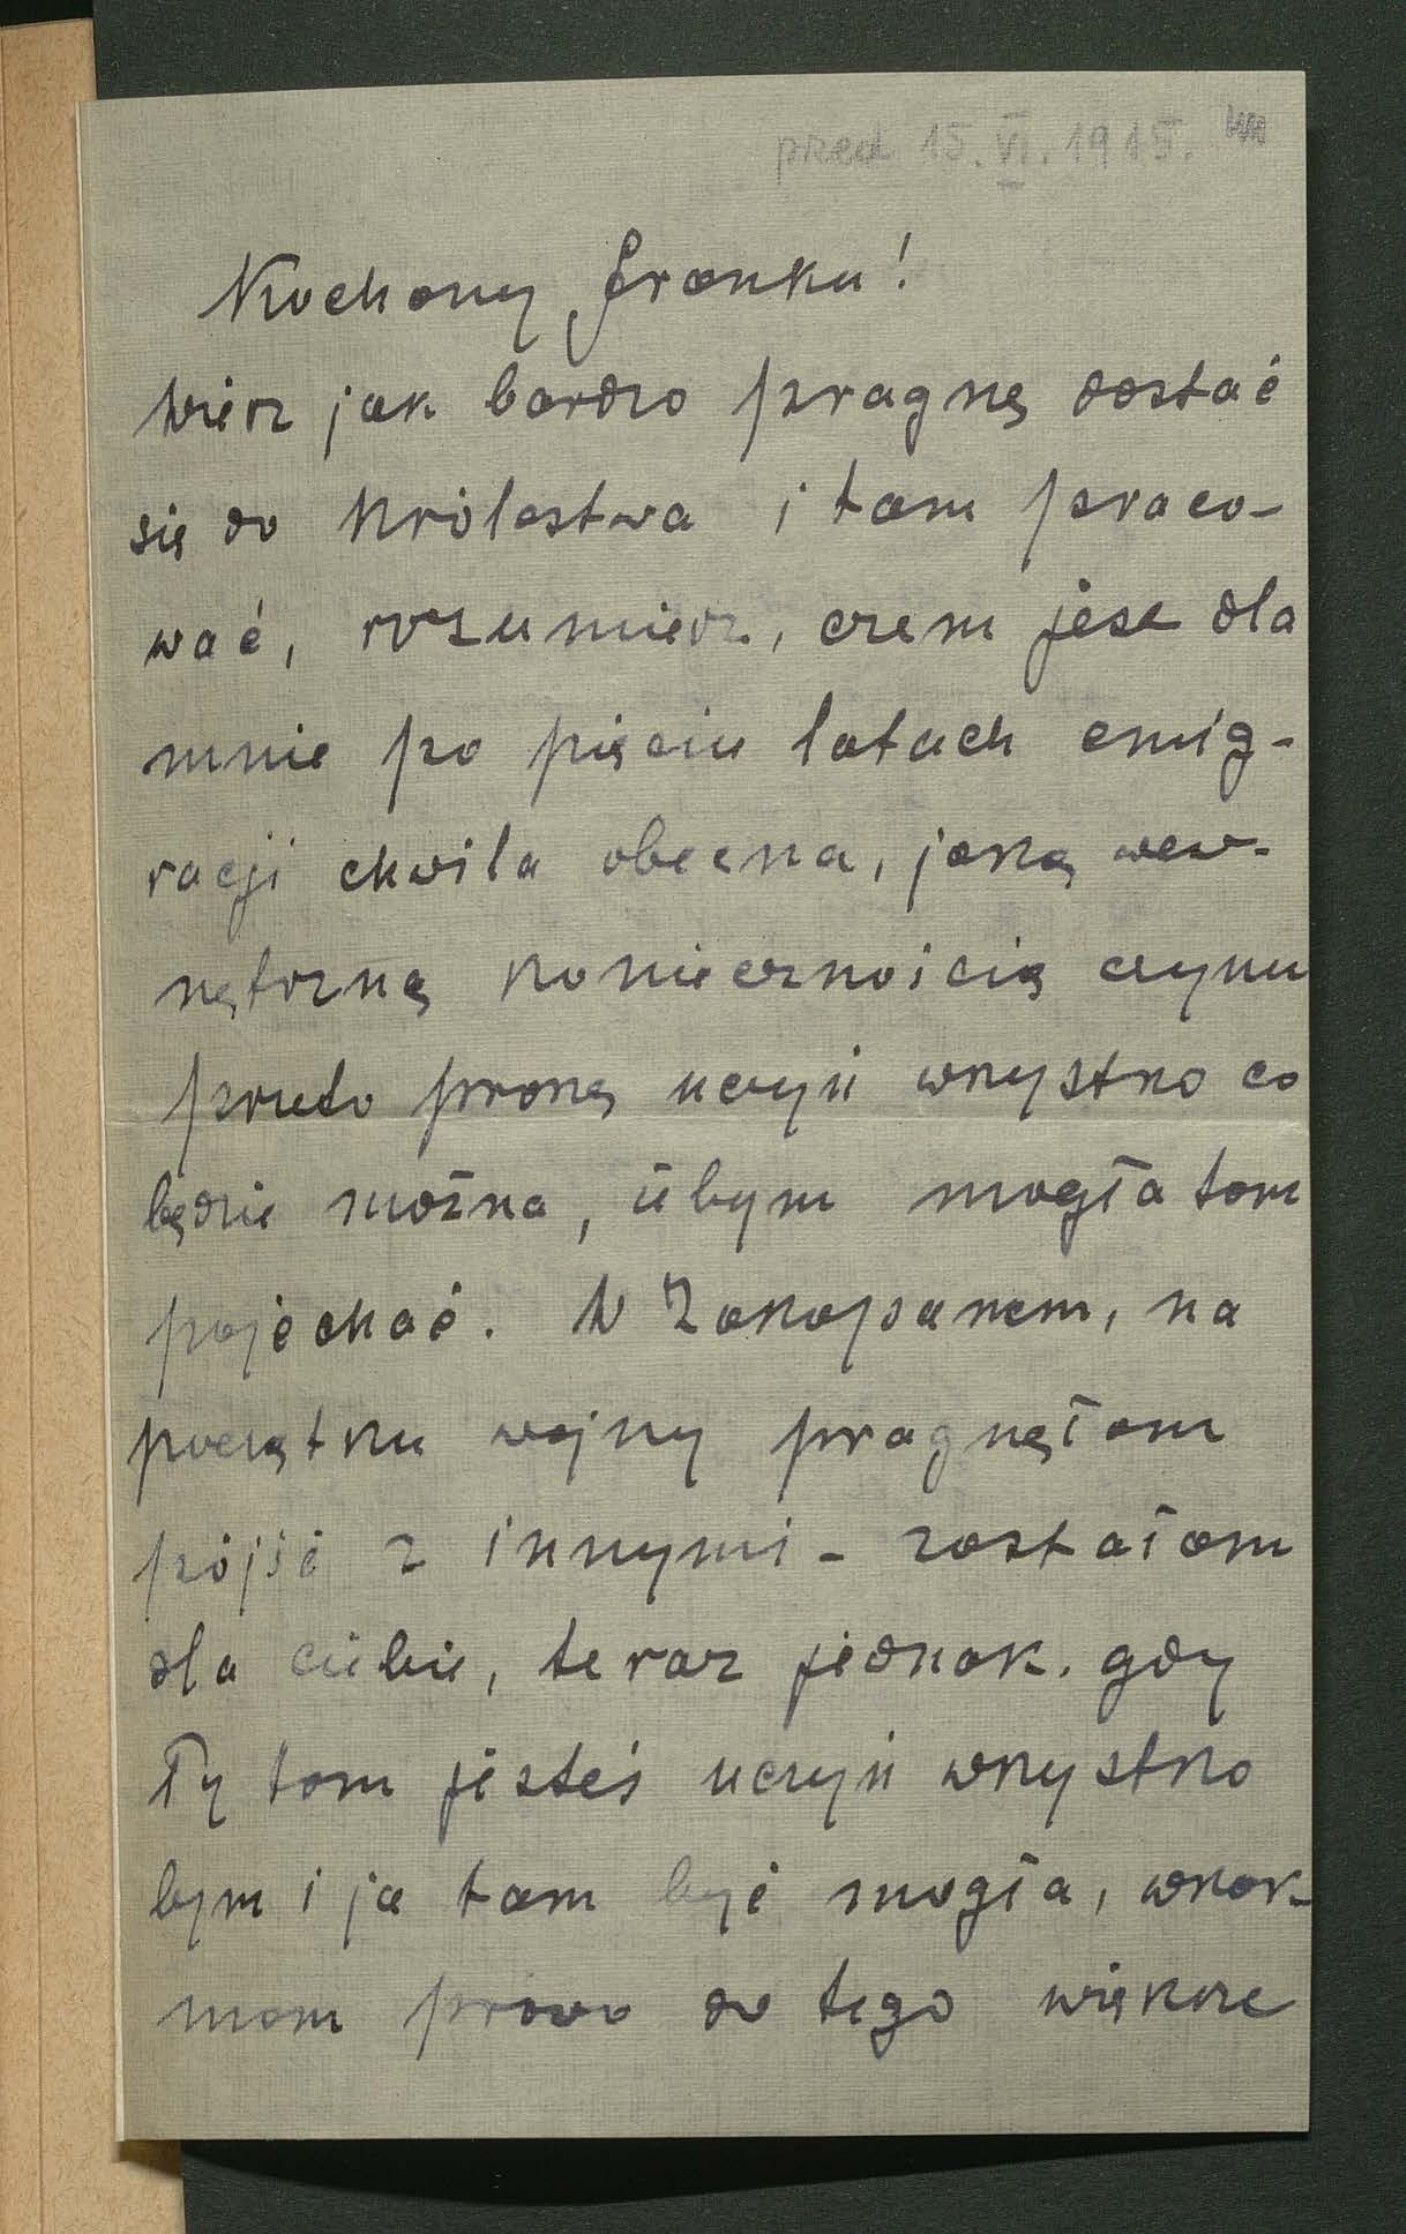 przed 15.VI.1915.
Kochany Franku!
Wiesz jak bardzo pragnę dostać
się do Królestwa i tam praco-
wać, rozumiesz, czem jest dla
mnie po pięciu latach emig-
racji chwila obecna, jaką wew-
nętrzną koniecznością czynu
przeto proszę uczyń wszystko co
będzie można, żebym mogła tam
pojechać. W Zakopanem, na
początku wojny pragnęłam
pójść z innymi - zostałam
dla ciebie, teraz jednak, gdy
Ty tam jesteś uczyń wszystko
bym i ja tam być mogła, wszak-
mam prawo do tego większe